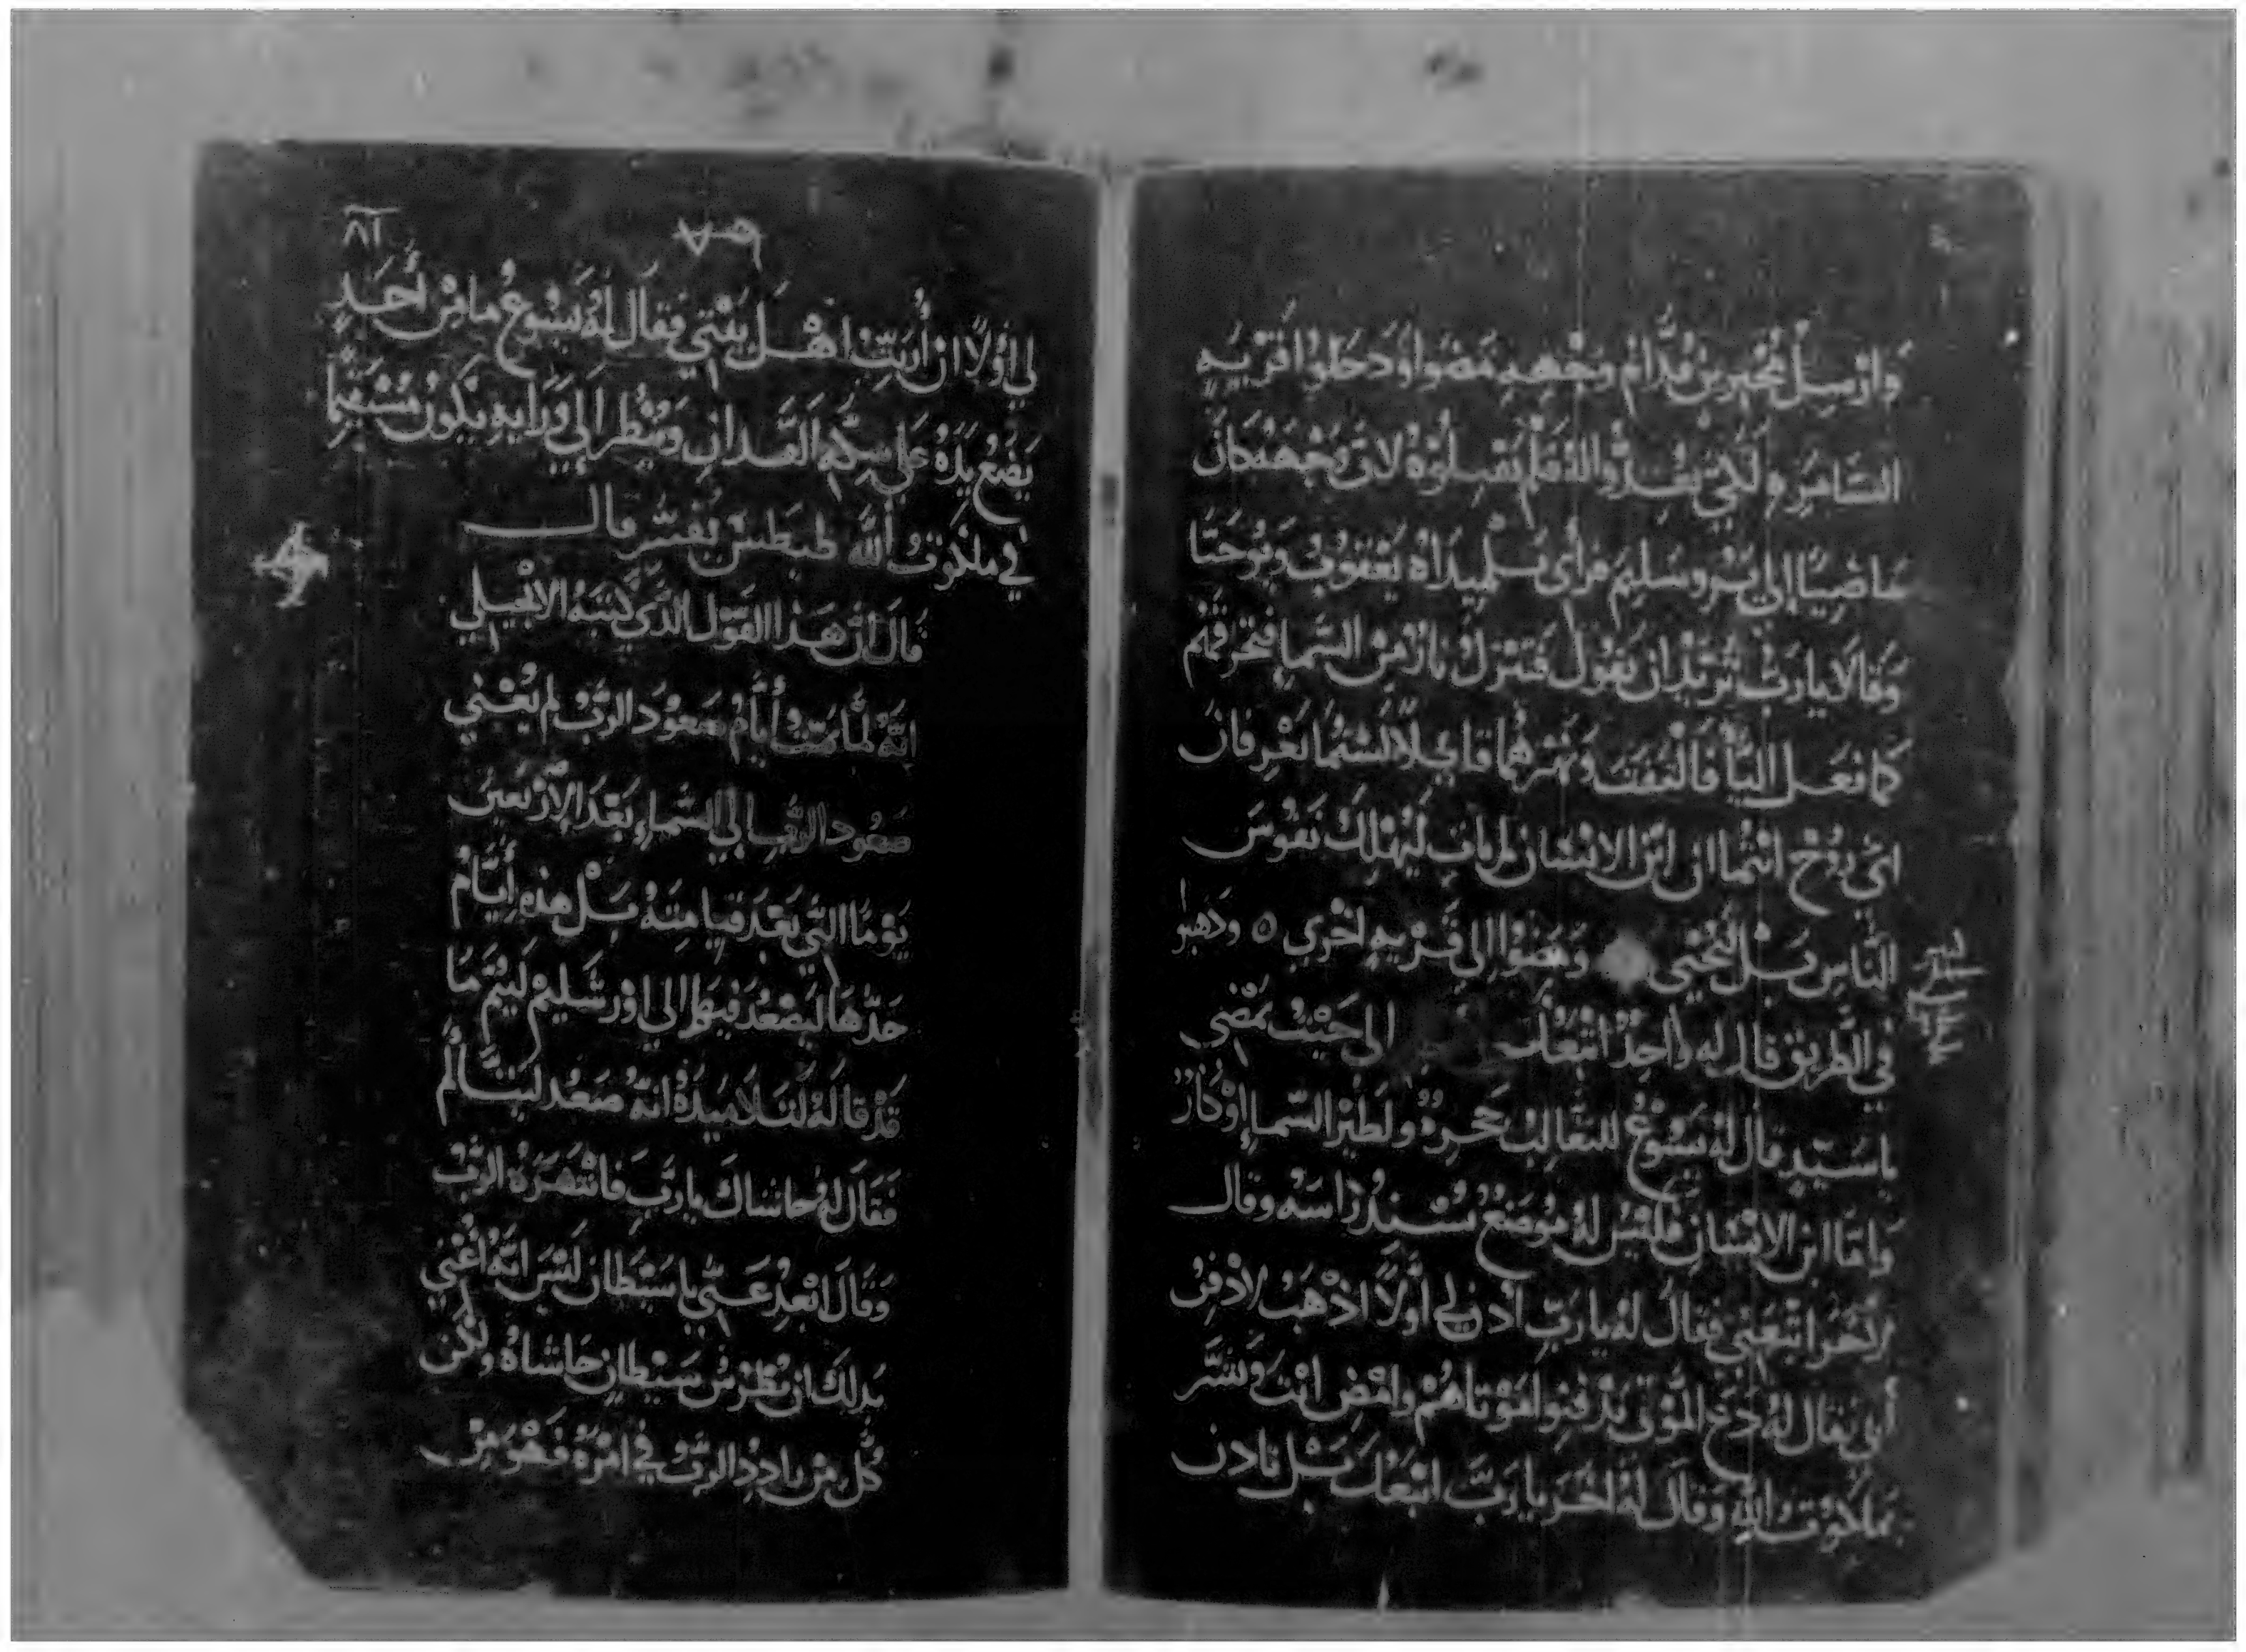 وَارْسِلُ مُخْبِرينَ قُدَّامَ وجْهِهِ فمَضوا وَدَخلوا قَرْيَهِ
السَّامره لَكَيْ يُعِدُّوا لهُ فلَمْ يَقبلوُهُ لانَ وَجْههُ كانَ
مَاضِيًا إلي يرُوسَلِيم فرأي تلْميِداهُ يَعْقوُبُ وَيُوحَنَّا
وَقالاَ يارَبْ تُريْدُ ان نقوُل فتنزلُ نارٌ مِنَ السَّما فتحرقهُم
كما فعَل اليَّا فَالتفتَ وَنهَرهُما قايلاً لسْتُما تعْرِفانَ
ايَ رُوْحْ انتُما ان ابْنَ الانسَان لم يات ليُهْلِك نفوُسَ
النَّاسِ بَل ليُحْيي ومَضَوْا إلي قرْيهِ اخْري ٥ ودهبُوا
في الطَّريْق قال له واحِدٌ اتبَعُك الي حَيْثُ تمْضي
يا سَيّدِ قال لهُ يَسُوْعُ للثعَالِبُ جَحرةٌ ولطَيْر السَّماءِ اوْكارٌ
وَامَّا ابن الانسَان فليْسَ لهُ مَوْضَعْ يُسْنِدُ رَاسَهُ وقال
لاخَرَ اتبَعني فقالَ لهُ يارَبِّ ادن لي أوَّلاً اذْهَبُ لادْفِنُ
أبي فقال لهُ دَع المَوْتي يَدْفنوا مَوْتاهُمْ وامْضِ انْتَ وَبَشَّر
بملكوْت اللهِ وَقالَ لهُ اخَر يارَبَّ اتبَعُك بَل تادن
٨٦
لي اوّلاً ان أُرَتِّبُ اهْل بَيْتي فقالَ لهُ يَسُوْعُ مامِنْ أحَدٍ
يَضَعُ يَدَهُ عَلي سِكّه الفَدانِ وَيَنْظُر إلي وَرَايهِ يكون مُسْتقيْمًا
في ملكوُتُ اللهَ لحيَطسْ يُفسّر قال
قالَ أنَّ هَذا القَوْل الذَّي كتبهُ الانْجيلي
انَّهُ لمَّا تمَّتْ أيَّامُ صَعوُدَ الرَّبُّ لم يُعْني
صَعُود الرَّبِ الي السَّماءِ بَعْدَ الأرْبَعينَ
يَوْمًا التَّي بَعْدَ قيامتهُ بَلْ هذه أيَّامُ
حَدَّهَا ليَصْعُد فيها إلي اوْرشَليْمْ ليُتمَ مَا
قدْ قالهُ لتلاميْدهُ انَّهُ صَعُد ليَتألَّم
فَقَال لهُ حاشاكَ يارَبَّ فانتهَرَهُ الرَّبُّ
وَقالَ ابْعِدْ عَنّي يا شَيْطَان ليْسَ انَّهُ أعْني
بدلكَ انَ بُطرُسُ شَيْطانٍ حَاشاهُ ولكن
كُل مَن يادِدُ الرَّبُّ في امْرهُ فَهُوَ مِنْ